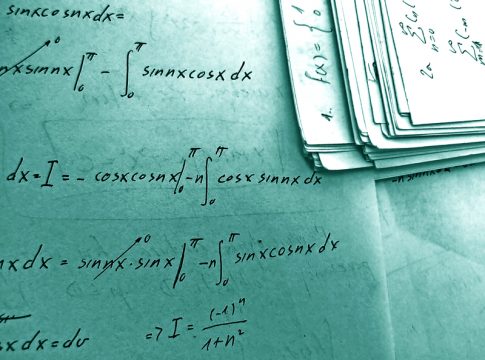 sinxcosnxdx=
nxsinnx|₀^π - ∫₀^π sinnxcosxdx
dx=I = - cosxcosnx|₀^π - n∫₀^π cosx sinnx dx
nxdx = sinnx·sinx|₀^π - n∫₀^π sinxcosnxdx
xdx=dv => I = (-1)ⁿ/1+n²
1. f(x) = { 0